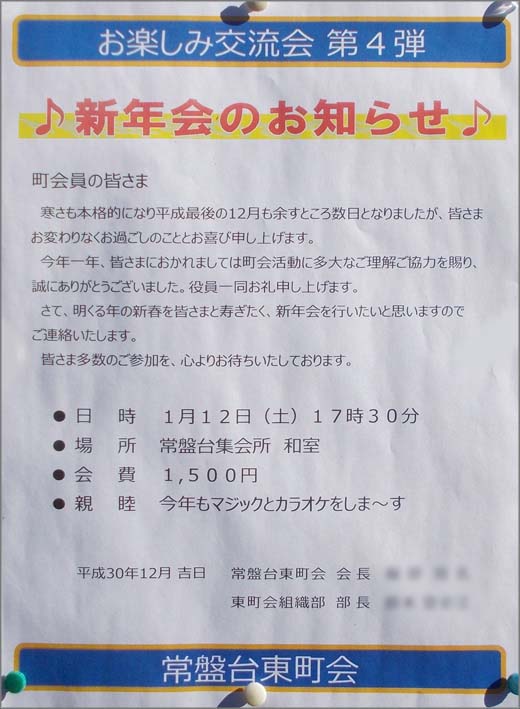 お楽しみ交流会 第4弾
♪新年会のお知らせ♪
町会員の皆さま
寒さも本格的になり平成最後の12月も余すところ数日となりましたが、皆さま
お変わりなくお過ごしのこととお喜び申し上げます。
今年一年、皆さまにおかれましては町会活動に多大なご理解ご協力を賜り、
誠にありがとうございました。役員一同お礼申し上げます。
さて、明くる年の新春を皆さまと寿ぎたく、新年会を行いたいと思いますので
ご連絡いたします。
皆さま多数のご参加を、心よりお待ちいたしております。
● 日　時　1月12日（土）17時30分
● 場　所　常盤台集会所 和室
● 会　費　1,500円
● 親　睦　今年もマジックとカラオケをしま～す
平成30年12月 吉日　常盤台東町会 会長
東町会組織部 部長
常盤台東町会